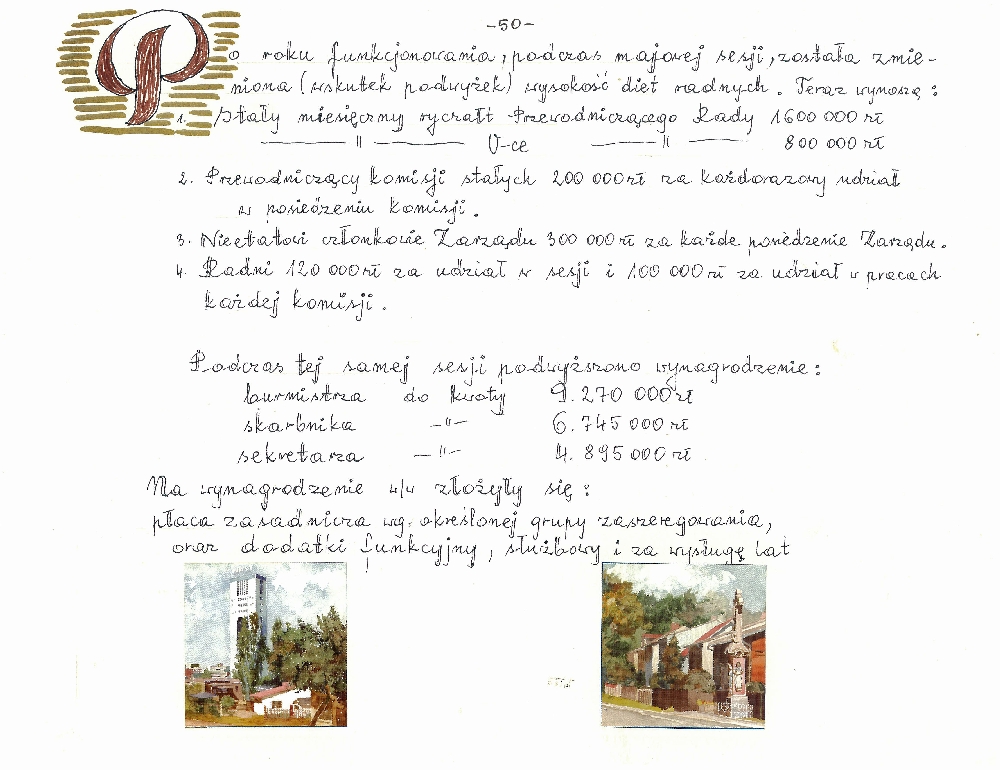 -50-
Po roku funkcjonowania, podczas majowej sesji, została zmie-
niona (wskutek podwyżek) wysokość diet radnych. Teraz wynoszą:
1. Stały miesięczny ryczałt Przewodniczącego Rady 1600 000 zł
—— " —— V-ce —— " —— 800 000 zł
2. Przewodniczący komisji stałych 200 000 zł za każdorazowy udział
w posiedzeniu komisji.
3. Nieetatowi członkowie Zarządu 300 000 zł za każde posiedzenie Zarządu.
4. Radni 120 000 zł za udział w sesji i 100 000 zł za udział w pracach
każdej komisji.
Podczas tej samej sesji podwyższono wynagrodzenie:
burmistrza do kwoty 9.270 000 zł
skarbnika —"— 6.745 000 zł
sekretarza —"— 4.895 000 zł
Na wynagrodzenie w/w złożyły się:
płaca zasadnicza wg. określonej grupy zaszeregowania,
oraz dodatki funkcyjny, służbowy i za wysługę lat